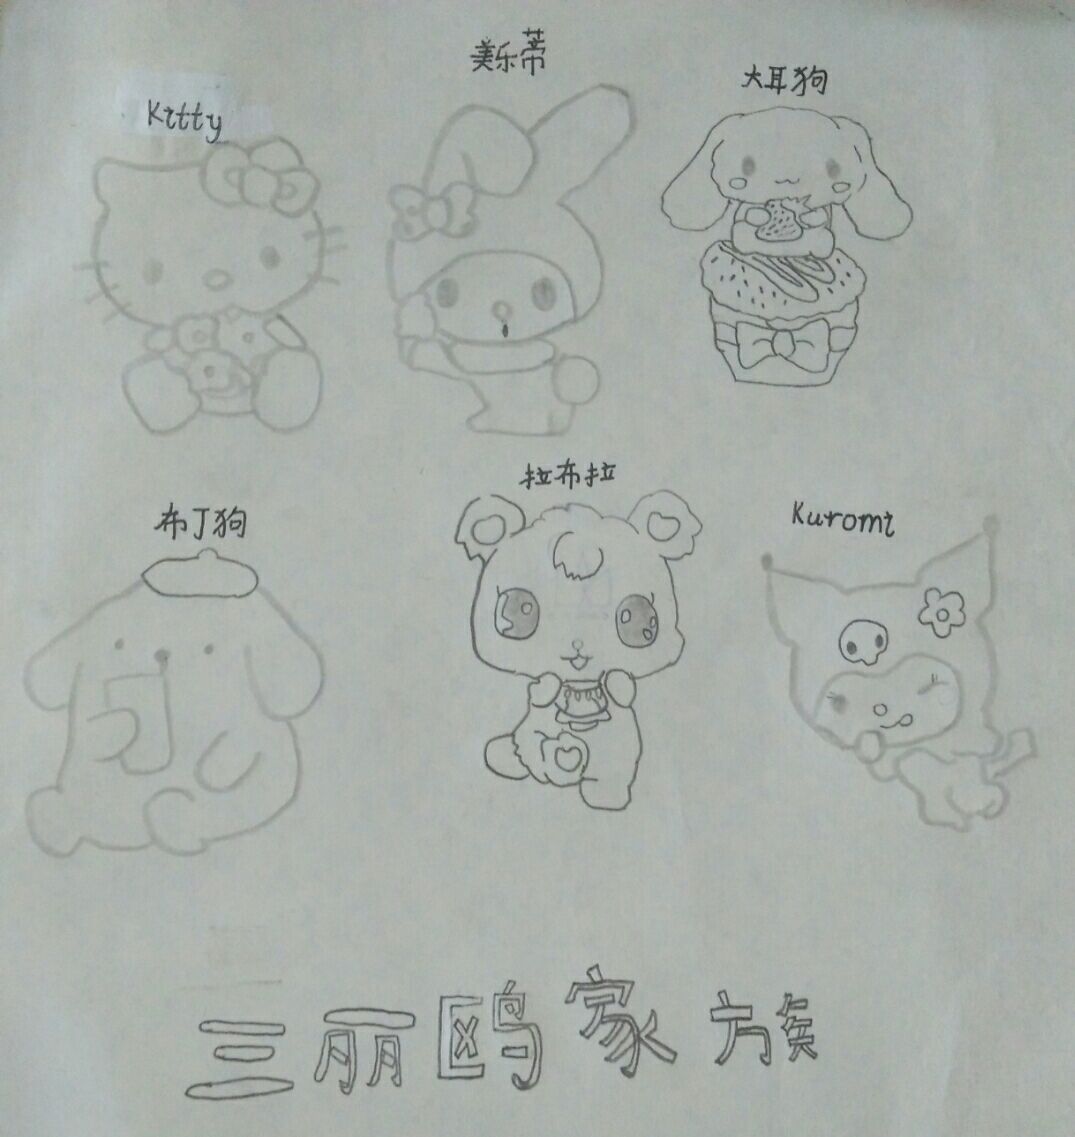 Kitty
美乐蒂
大耳狗
布丁狗
拉布拉
Kuromi
三丽鸥家族